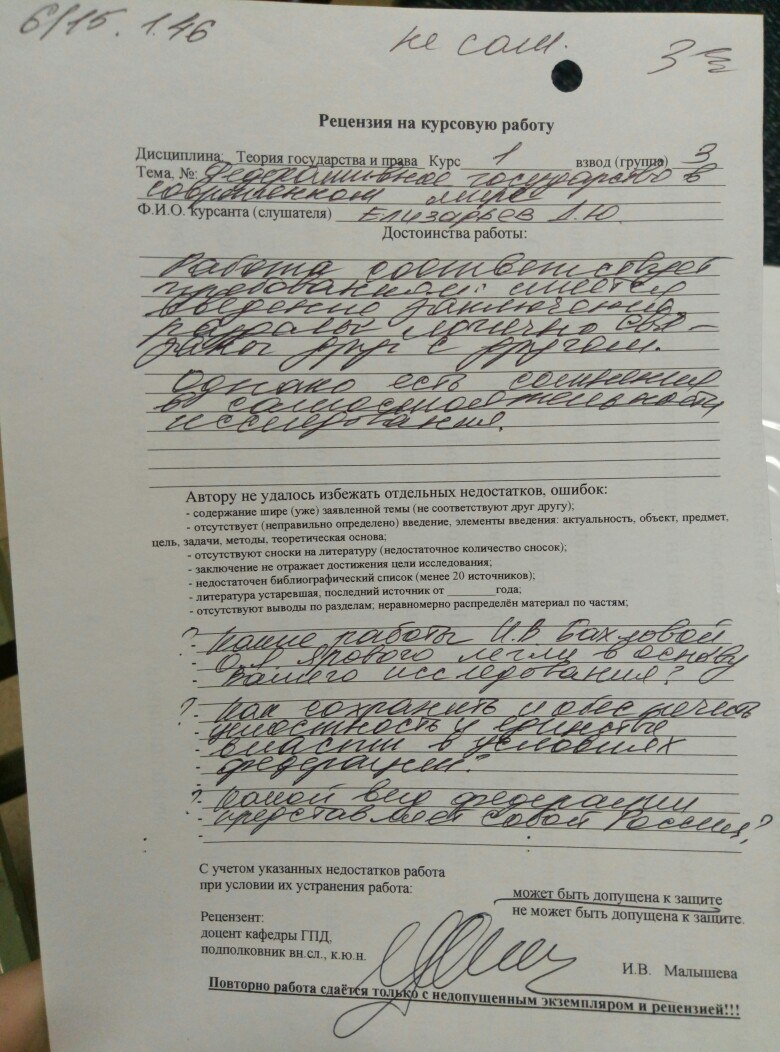 6/15. 1.46
не сам.
3
Рецензия на курсовую работу
Дисциплина: Теория государства и права Курс 1 взвод (группа) 3
Тема, №: Федеративное государство в
современном мире
Ф.И.О. курсанта (слушателя) Елизарьев Д.Ю.
Достоинства работы:
Работа соответствует
требованиям: имеется
введение, заключение
разделы логично свя-
заны друг с другом.
Однако есть сомнения
в самостоятельности
исследования.
Автору не удалось избежать отдельных недостатков, ошибок:
- содержание шире (уже) заявленной темы (не соответствуют друг другу);
- отсутствует (неправильно определено) введение, элементы введения: актуальность, объект, предмет,
цель, задачи, методы, теоретическая основа;
- отсутствуют сноски на литературу (недостаточное количество сносок);
- заключение не отражает достижения цели исследования;
- недостаточен библиографический список (менее 20 источников);
- литература устаревшая, последний источник от ________ года;
- отсутствуют выводы по разделам; неравномерно распределён материал по частям;
? - Какие работы И.В Бахловой
- Ярового легли в основу
- Вашего исследования?
? - Как сохранить и обеспечить
- целостность и единство
- власти в условиях
- федерации?
? - Какой вид федерации
- представляет собой Россия?
-
С учетом указанных недостатков работа
при условии их устранения работа:
может быть допущена к защите
не может быть допущена к защите.
Рецензент:
доцент кафедры ГПД,
подполковник вн.сл., к.ю.н.
И.В. Малышева
Повторно работа сдаётся только с недопущенным экземпляром и рецензией!!!